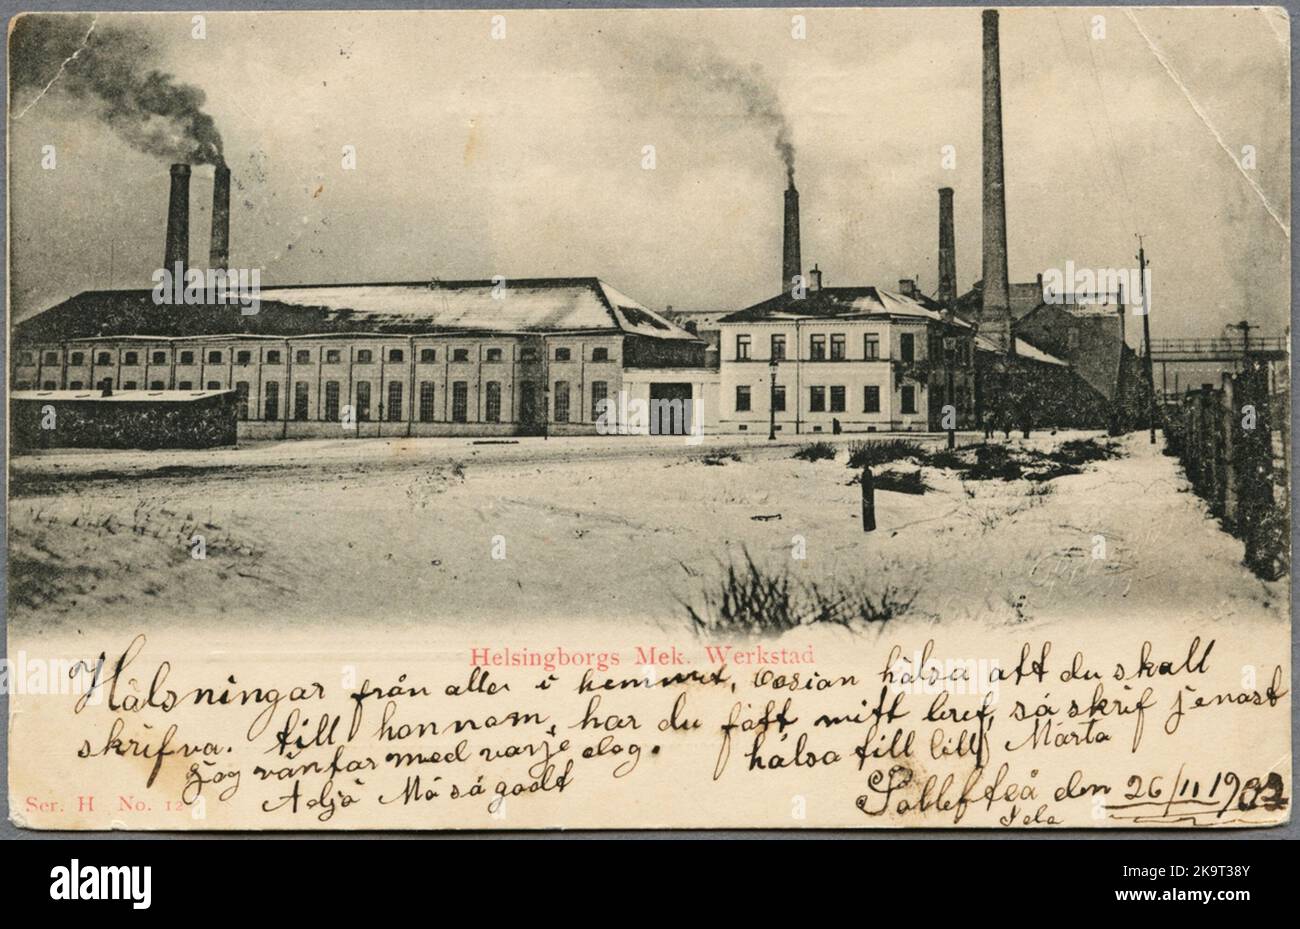 Helsingborgs Mek. Werkstad
Hälsningar från aller i hemmet, hälsa att du skall
skrifva. till honnom, har du fått mitt bref, så skrif jenast
jag väntar med varje dag. hälsa till lill Märta
Adjö Må så godt
den 26/11 1902
Ser. H No. 12
alamy
alamy
Image ID: K9T38Y
www.alamy.com